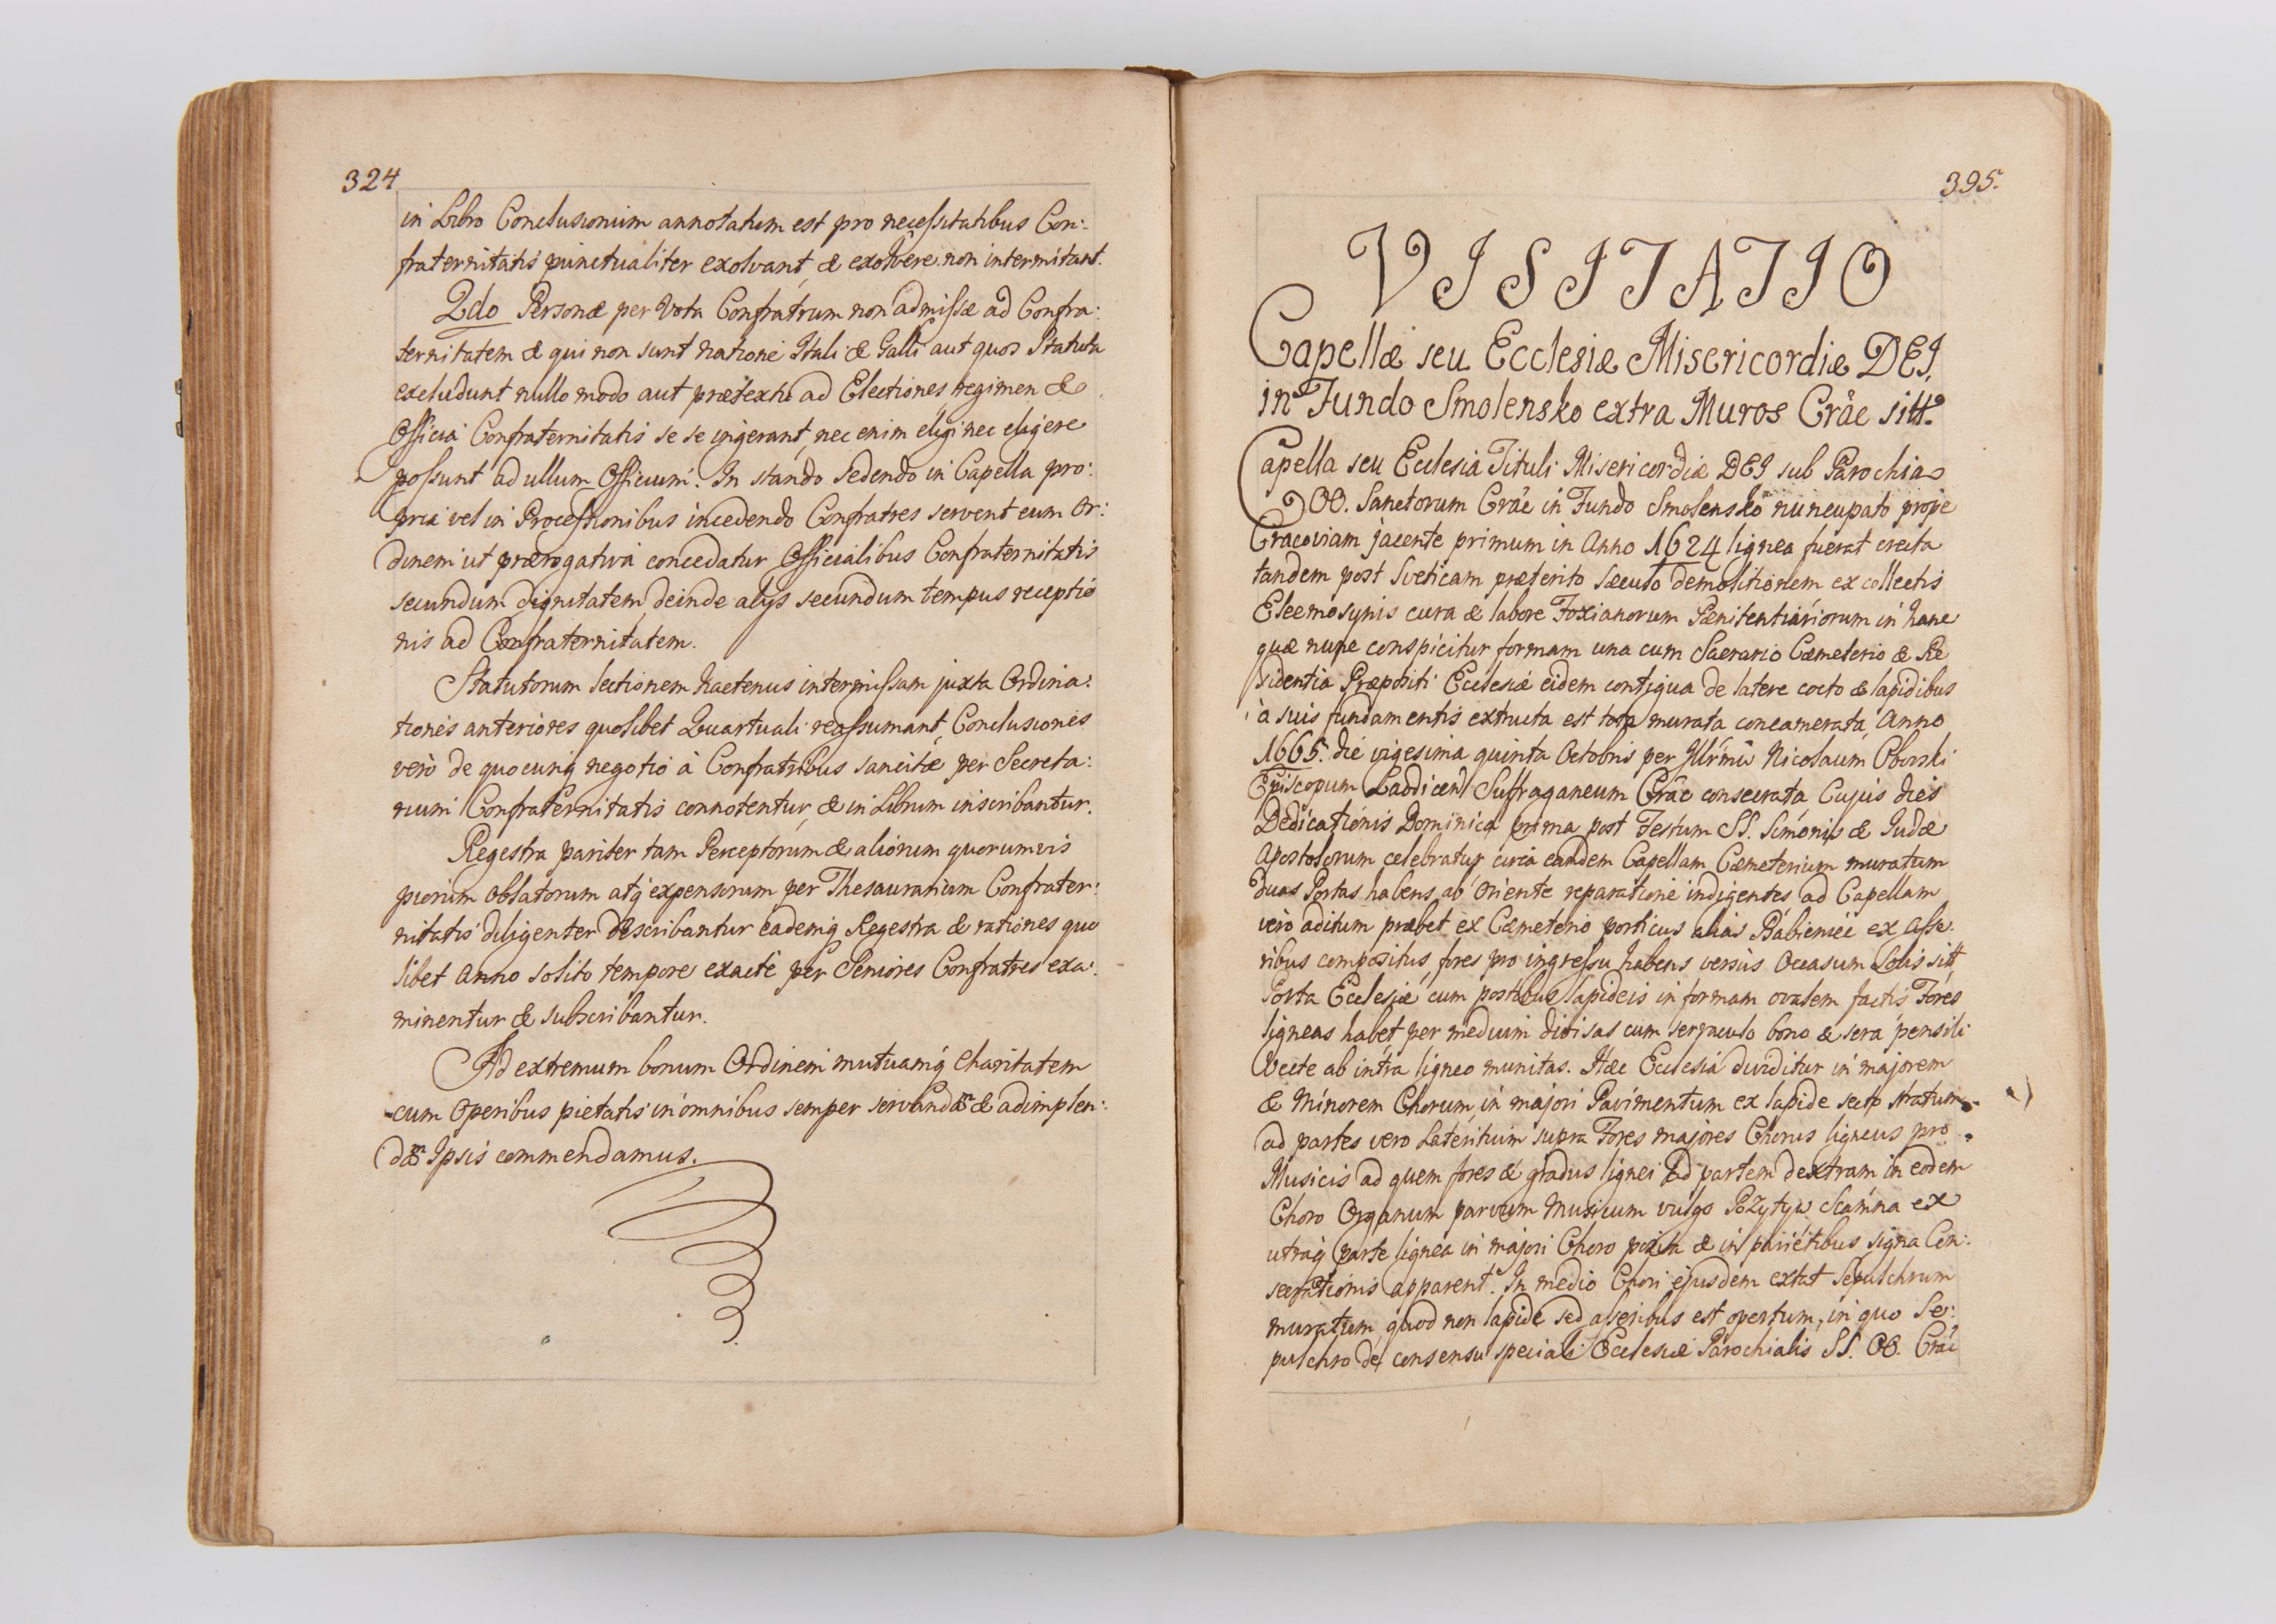 324
in Libro Conclusionum annotatum est pro necessitatibus Con:
fraternitatis punctualiter exolvant, & exolvere non intermitant.
2do Personæ per Vota Confratrum non admissæ ad Confra:
ternitatem & qui non sunt natione Itali & Galli aut quos Statuta
excludunt nullo modo aut prætextu ad Electiones regimen &
Officia Confraternitatis se se ingerant, nec enim eligi nec eligere
possunt ad ullum Officium. In stando sedendo in Capella pro:
pria vel in Processionibus incedendo Confratres servent eum Or:
dinem ut prærogativa concedatur Officialibus Confraternitatis
secundum dignitatem deinde alys secundum tempus receptio
nis ad Confraternitatem.
Statutorum lectionem hactenus intermissam juxta Ordina:
tiones anteriores quolibet Quartuali reassumant, Conclusiones
verò de quocunq negotio à Confratribus sancitæ per Secreta:
rium Confraternitatis connotentur, & in Librum inscribantur.
Regestra pariter tam Perceptorum & aliorum quorumvis
piorum oblatorum atq expensorum per Thesaurarium Confrater:
nitatis diligenter describantur eademq Regestra & rationes quo
libet Anno solito tempore exacte per Seniores Confratres exa:
minentur & subscribantur.
Ad extremum bonum Ordinem mutuamq Charitatem
cum Operibus pietatis in omnibus semper servand & adimplen:
Ipsis commendamus.
395.
VISITATIO
Capellæ seu Ecclesiæ Misericordiæ DEI.
in Fundo Smolensko extra Muros Crãe sitt.
Capella seu Ecclesia Tituli Misericordiæ DEI sub Parochia
OO. Sanctorum Crãe in Fundo Smolensko nuncupato prope
Cracoviam jacente primum in Anno 1624 lignea fuerat erecta
tandem post Sveticam præterito sæculo demolitionem ex collectis
Eleemosynis cura & labore Foxianorum Pænitentiariorum in hanc
quæ nunc conspicitur formam una cum Sacrario Cæmeterio & Re
sidentia Præpositi Ecclesiæ eidem contigua de latere cocto & lapidibus
à suis fundamentis extructa est tota murata concamerata, Anno
1665. die vigesima quinta Octobris per Illrmũ Nicolaum Oborski
Episcopum Laodicen Suffraganeum Crãe consecrata, Cujus dies
Dedicationis Dominica prima post Festum SS. Simonis & Judæ
Apostolorum celebratur circa eandem Capellam Cæmeterium muratum
duas Portas habens ab Oriente reparatione indigentes ad Capellam
verò aditum præbet ex Cæmeterio porticus alias Babieniec ex asse:
ribus compositus, fores pro ingressu habens versus Occasum Solis sitt
Porta Ecclesiæ cum postibus lapideis in formam ovalem factis Fores
ligneas habet per medium divisas cum serraculo bono & sera pensili
Vecte ab intra ligneo munitas. Hæc Ecclesia dividitur in majorem
& Minorem Chorum, in majori Pavimentum ex lapide secto stratum
ad partes vero Lateritium supra Fores majores Chorus ligneus pro
Musicis ad quem fores & gradus lignei ad partem dextram in eodem
Choro Organum parvum Musicum vulgo Pozytyw Scamna ex
utraq parte lignea in majori Choro posita & in parietibus signa Con:
secrationis apparent. In medio Chori ejusdem extat Sepulchrum
muratum, quod non lapide sed asseribus est opertum, in quo Se:
pulchro de consensu speciali Ecclesiæ Parochialis SS. OO. Crãe